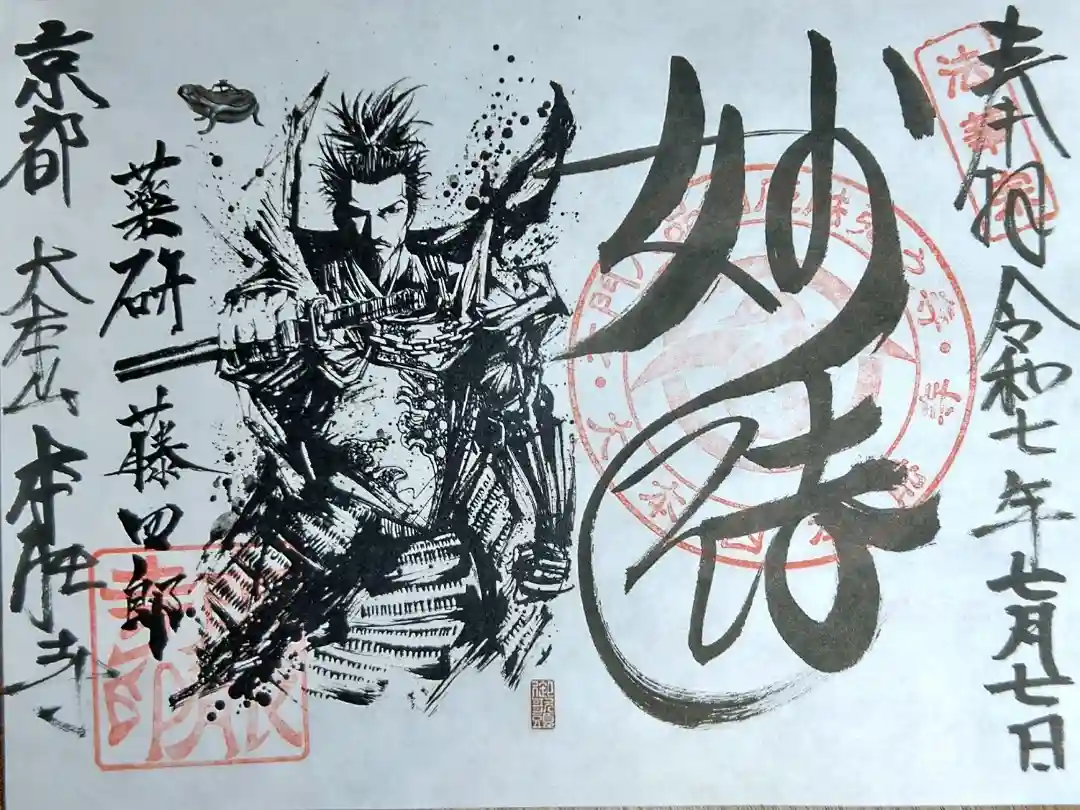 奉拝
令和七年七月七日
妙法
薬研 藤四郎
京都 大本山 本能寺